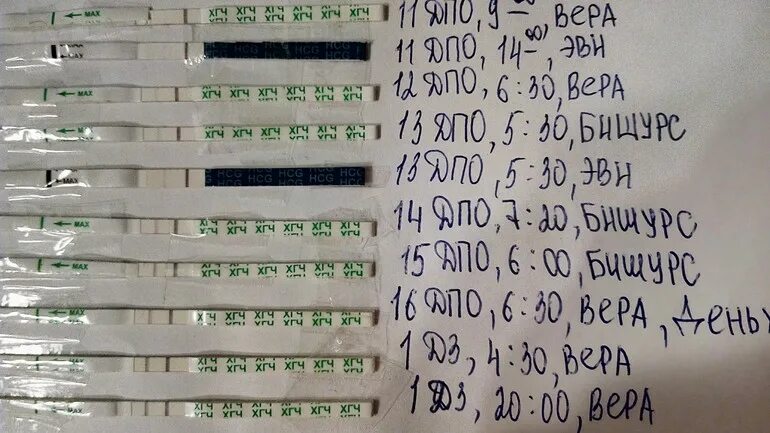 MAX ХГЧ ХГЧ ХГЧ ХГЧ ХГЧ ХГЧ 11 ДПО, 9⁻⁰⁰, ВЕРА
MAX HCG HCG HCG HCG 11 ДПО, 14⁻⁰⁰, ЭВН
MAX ХГЧ ХГЧ ХГЧ ХГЧ ХГЧ ХГЧ 12 ДПО, 6:30, ВЕРА
MAX ХГЧ ХГЧ ХГЧ ХГЧ ХГЧ ХГЧ 13 ДПО, 5:30, БИШУРС
MAX HCG HCG HCG HCG 13 ДПО, 5:30, ЭВН
MAX ХГЧ ХГЧ ХГЧ ХГЧ ХГЧ ХГЧ 14 ДПО, 7:20, БИШУРС
MAX ХГЧ ХГЧ ХГЧ ХГЧ ХГЧ ХГЧ 15 ДПО, 6:00, БИШУРС
MAX ХГЧ ХГЧ ХГЧ ХГЧ ХГЧ ХГЧ 16 ДПО, 6:30, ВЕРА, ДЕНЬ
MAX ХГЧ ХГЧ ХГЧ ХГЧ ХГЧ ХГЧ 1 ДЗ, 4:30, ВЕРА
MAX ХГЧ ХГЧ ХГЧ ХГЧ ХГЧ ХГЧ 1 ДЗ, 20:00, ВЕРА